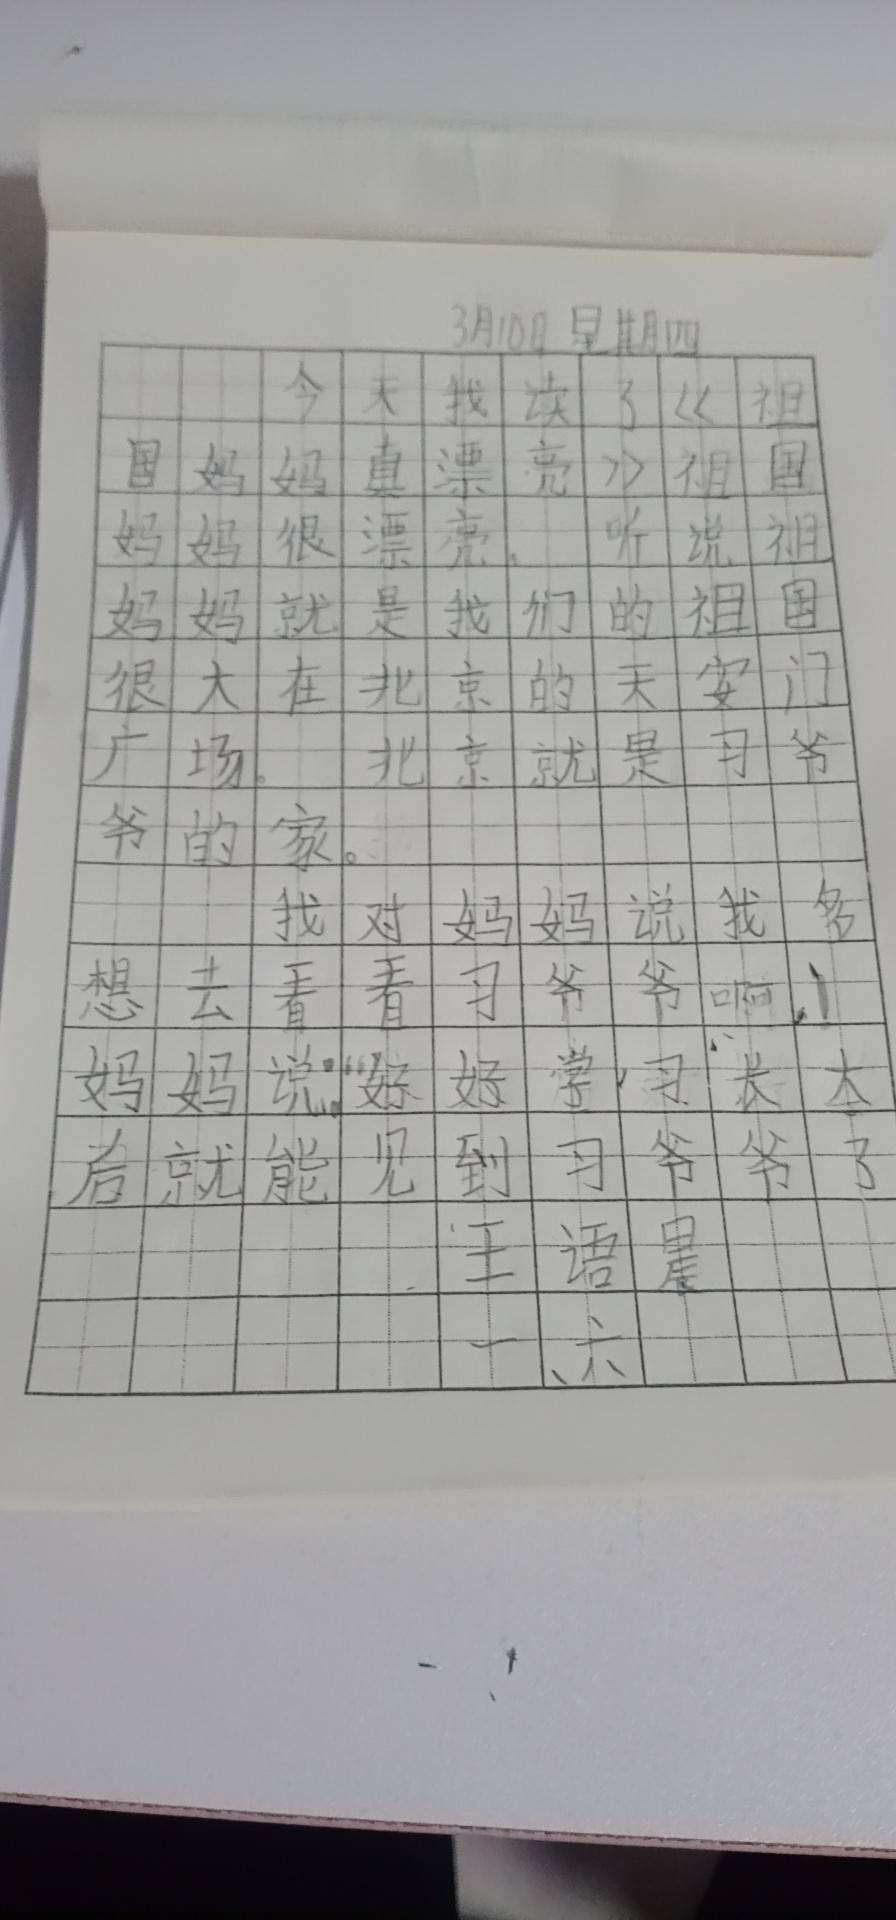 3月10日 星期四
今天我读了《祖
国妈妈真漂亮》祖国
妈妈很漂亮。听说祖
妈妈就是我们的祖国
很大在北京的天安门
广场。北京就是习爷
爷的家。
我对妈妈说我多
想去看看习爷爷啊!
妈妈说:“好好学习长大
后就能见到习爷爷了
王语晨
一、六